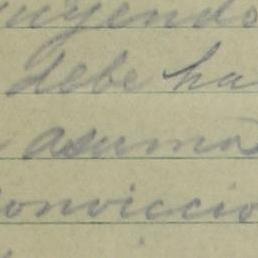 uyendo
debe ha
asuma
onviccio